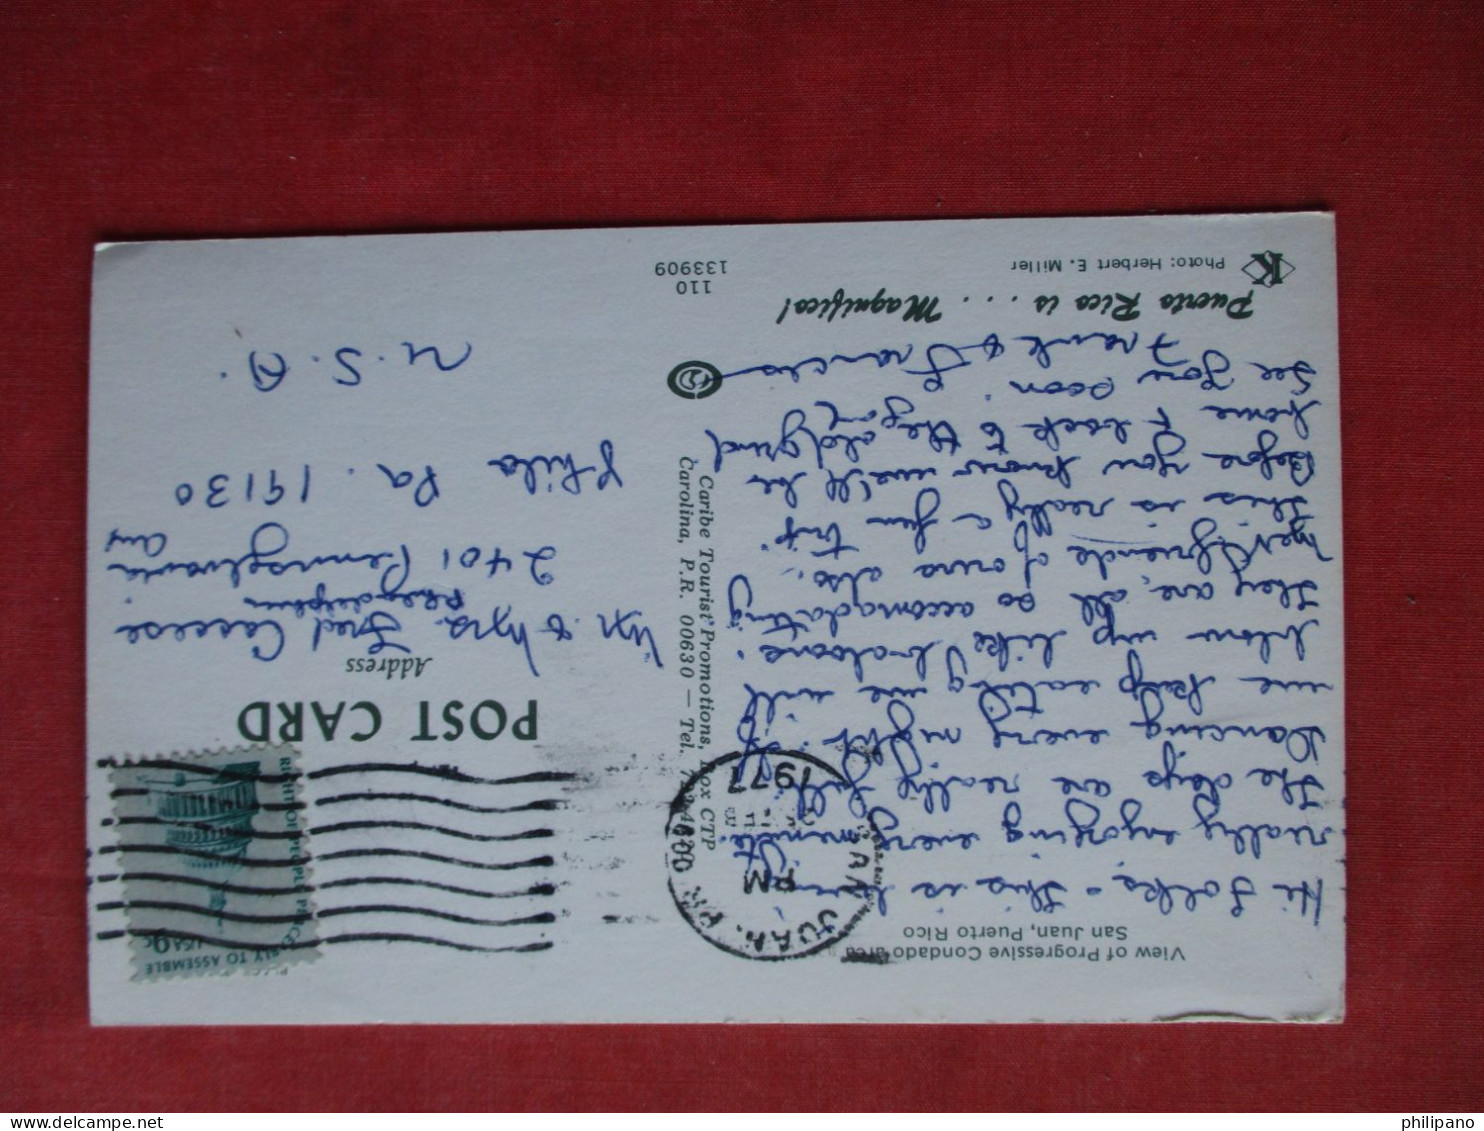 View of Progressive Condado area
San Juan, Puerto Rico
Hi Folks - This is
really enjoying every minute.
The days are really full. It's
Dancing every night. If
we keep eating we will
blow up like balloons.
They are, all so accomadating
friends of ours also.
This is really a fun trip.
Before you know we'll be
home & back to the old grind
See you soon.
Frank & Frances
Puerto Rico is . . . Magnifico!
K
Photo: Herbert E. Miller
110
133909
Caribe Tourist Promotions, Box CTP
Carolina, P.R. 00630 — Tel.
SAN JUAN, P.R. 009
PM
1977
RIGHT OF PEOPLE PEACEABLY TO ASSEMBLE
USA 9c
POST CARD
Address
Mr. & Mrs. Fred Caccese
2401 Pennsylvania
Ave
Phila Pa. 19130
U.S.A.
philipano